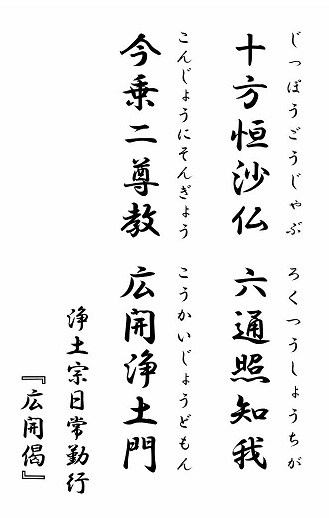 じっぽうごうじゃぶ ろくつうしょうちが
十方恒沙仏 六通照知我
こんじょうにそんぎょう こうかいじょうどもん
今乗二尊教 広開浄土門
浄土宗日常勤行
『広開偈』